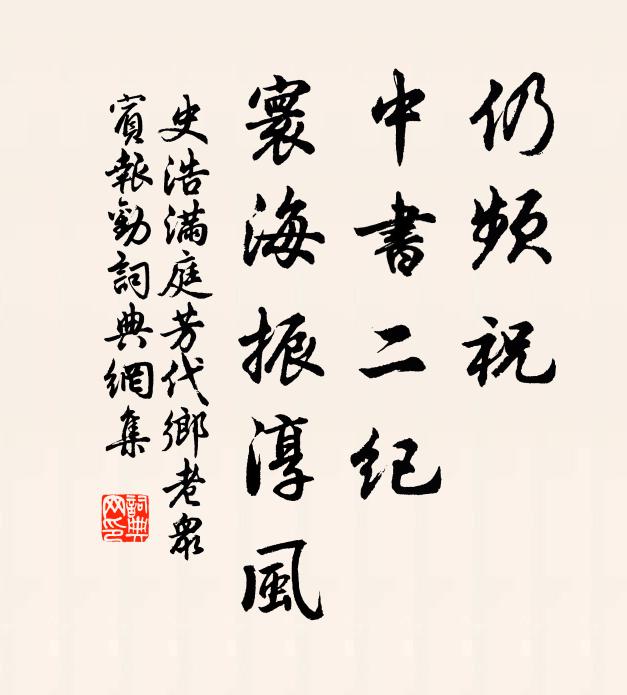 仍頻祝
中書二紀
寰海振淳風
史浩滿庭芳代鄉老眾
賓報勸詞典網集
詞典
网印